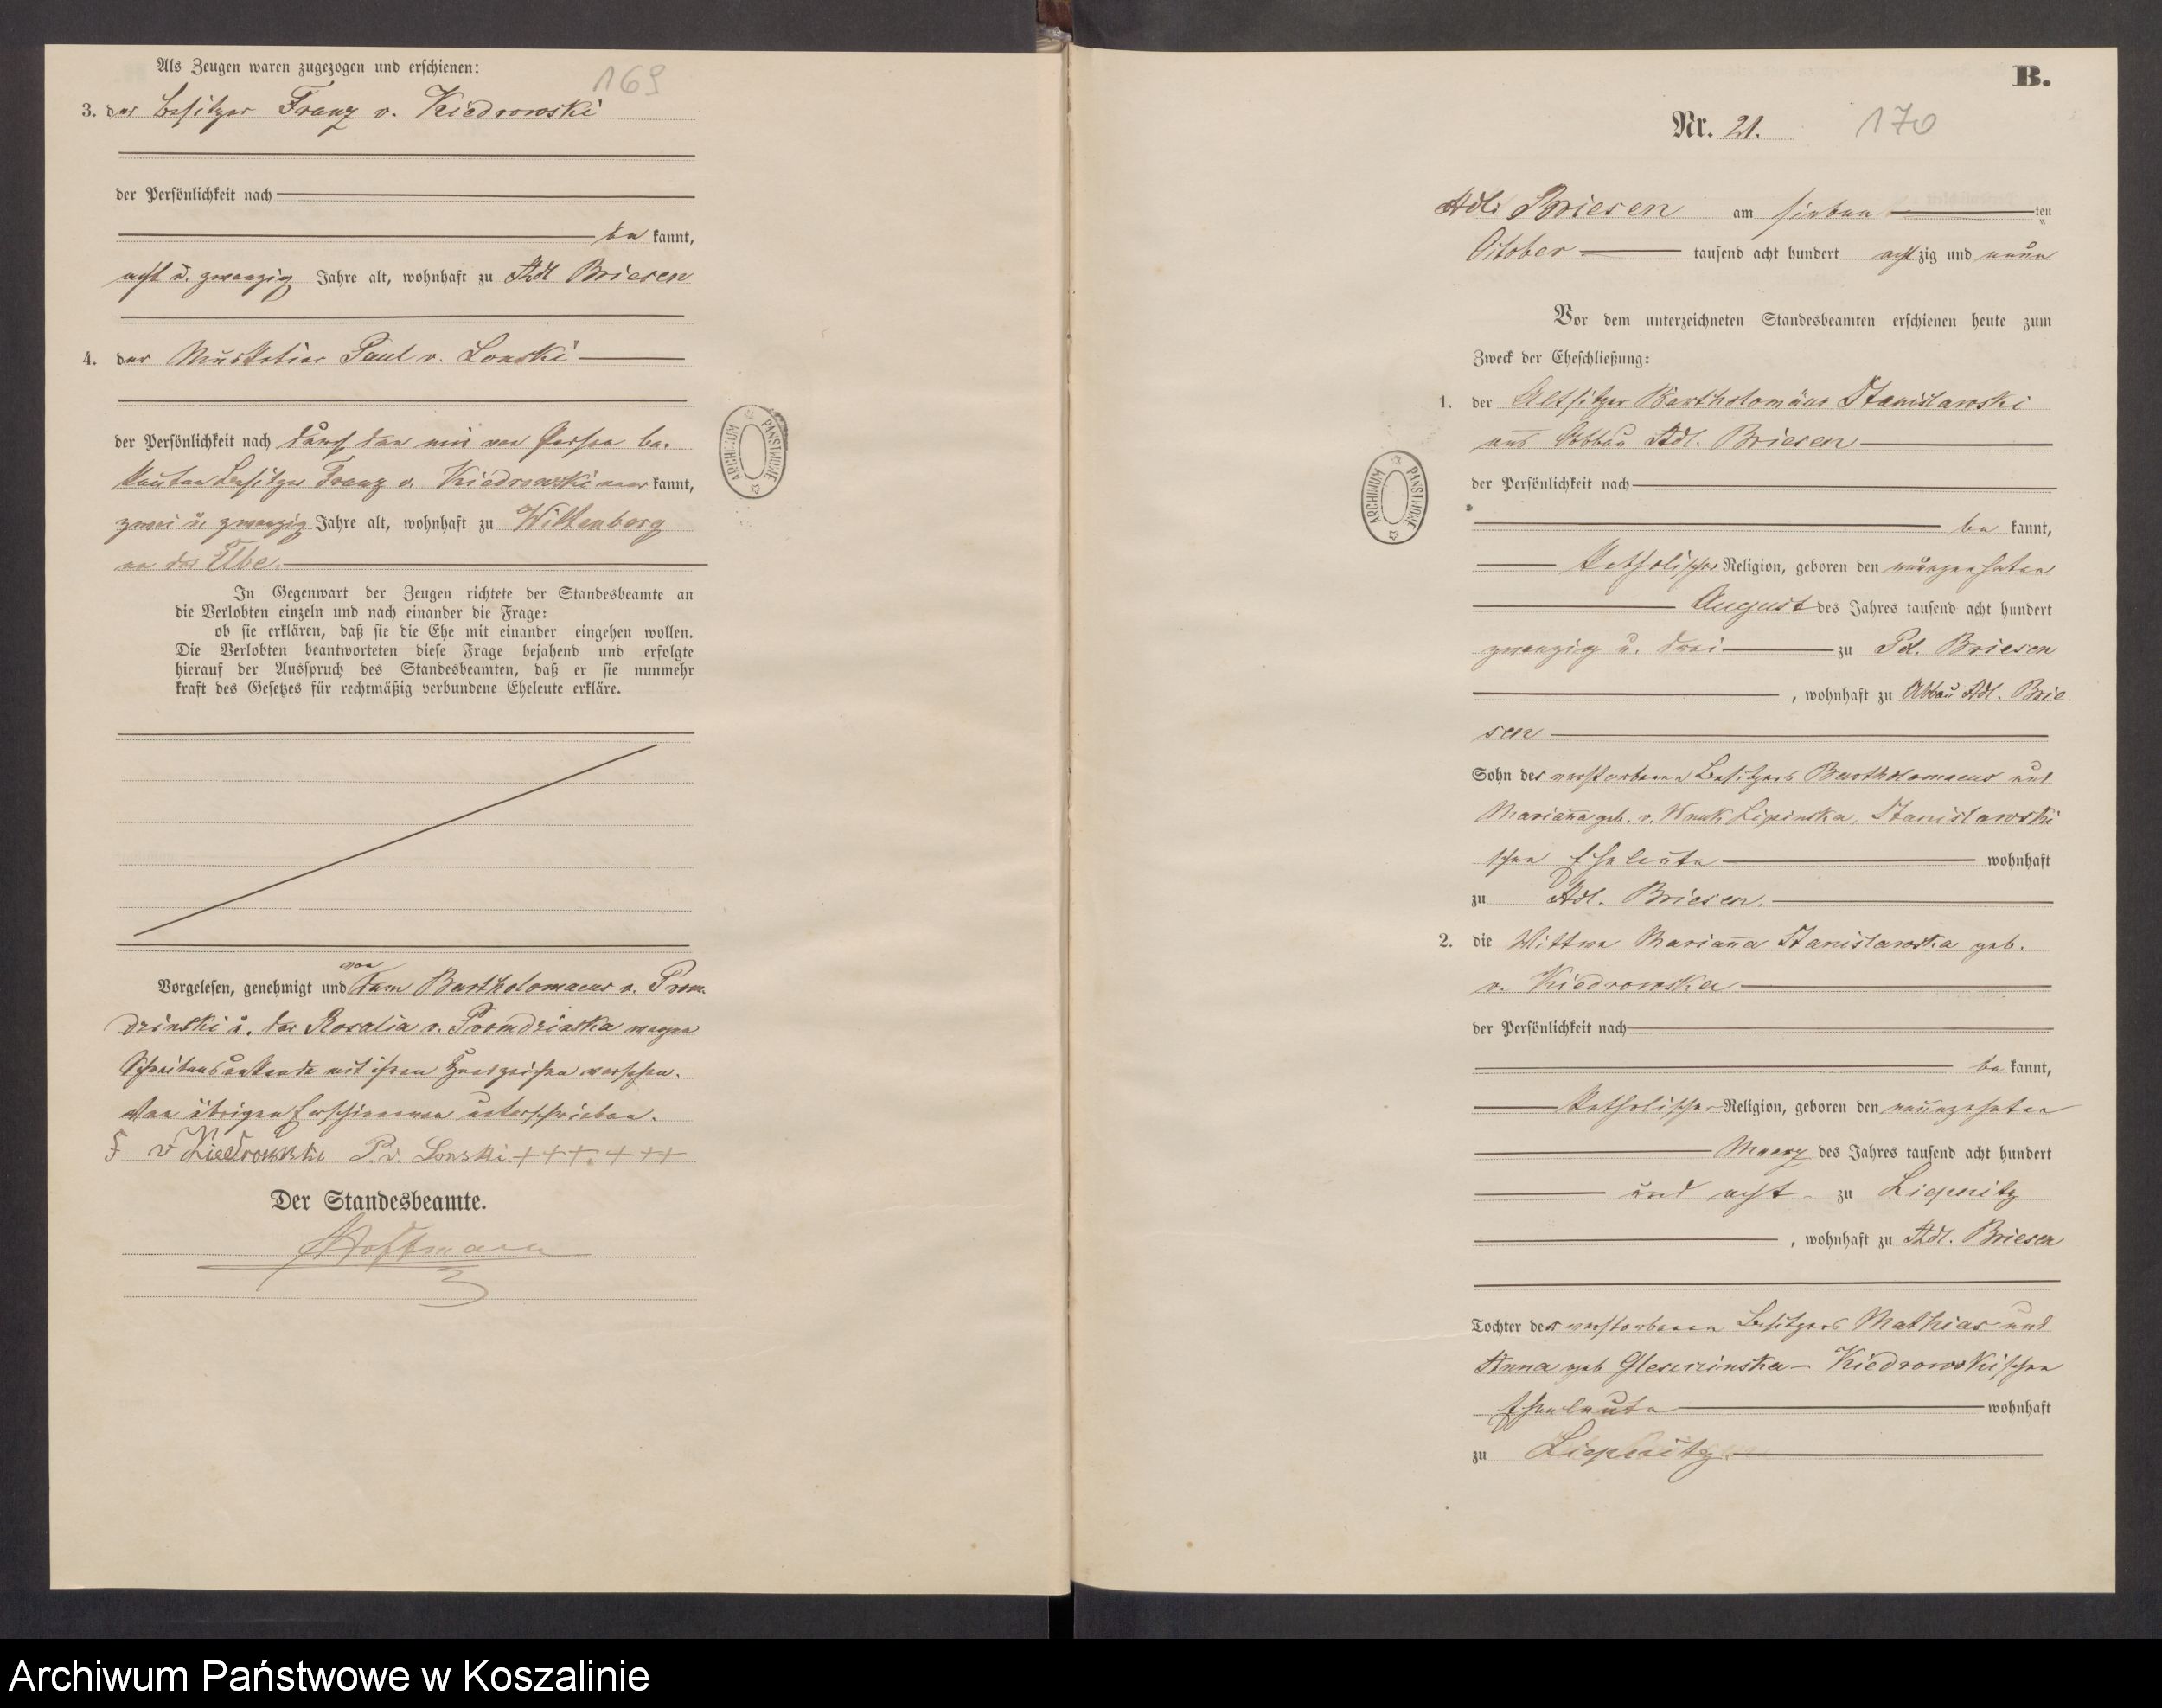 169
Als Zeugen waren zugezogen und erschienen:
3. der Besitzer Franz v. Kiedrowski
der Persönlichkeit nach
be kannt,
acht u. zwanzig Jahre alt, wohnhaft zu Adl Briesen
4. der Musketier Paul v. Lonski
der Persönlichkeit nach durch den mir von Person be-
kannten Besitzer Franz v. Kiedrowski aner kannt,
zwei u. zwanzig Jahre alt, wohnhaft zu Wittenberg
an der Elbe.
In Gegenwart der Zeugen richtete der Standesbeamte an
die Verlobten einzeln und nach einander die Frage:
ob sie erklären, daß sie die Ehe mit einander eingehen wollen.
Die Verlobten beantworteten diese Frage bejahend und erfolgte
hierauf der Ausspruch des Standesbeamten, daß er sie nunmehr
kraft des Gesetzes für rechtmäßig verbundene Eheleute erkläre.
Vorgelesen, genehmigt und von dem Bartholomaeus v. Prom-
dzinski u. der Rosalia v. Promdzinska wegen
Schreibensunkunde mit ihren Handzeichen versehen.
Von übrigen Erschienenen unterschrieben.
F v Kiedrowski P. v. Lonski. +++. +++
Der Standesbeamte.
Hoffmann
B.
Nr. 21.
170
Adl. Briesen am sieben ten
October tausend acht hundert acht zig und neun
Vor dem unterzeichneten Standesbeamten erschienen heute zum
Zweck der Eheschließung:
1. der Altsitzer Bartholomäus Stanislawski
aus Abbau Adl. Briesen
der Persönlichkeit nach
be kannt,
katholischer Religion, geboren den neunzehnten
August des Jahres tausend acht hundert
zwanzig u. drei zu Adl. Briesen
, wohnhaft zu Abbau Adl. Brie-
sen
Sohn der verstorbenen Besitzers Bartholomaeus und
Marianna geb. v. Wnuk Lipinska, Stanislawski
schen Eheleute wohnhaft
zu Adl. Briesen.
2. die Wittwe Marianna Stanislawska geb.
v. Kiedrowska
der Persönlichkeit nach
be kannt,
katholischer Religion, geboren den neunzehnten
Maerz des Jahres tausend acht hundert
und acht zu Liepnitz
, wohnhaft zu Adl. Briesen
Tochter der verstorbenen Besitzers Mathias und
Anna geb Kiedrowskischen
Eheleute wohnhaft
zu Liepnitz.
ARCHIWUM PAŃSTWOWE
ARCHIWUM PAŃSTWOWE
Archiwum Państwowe w Koszalinie